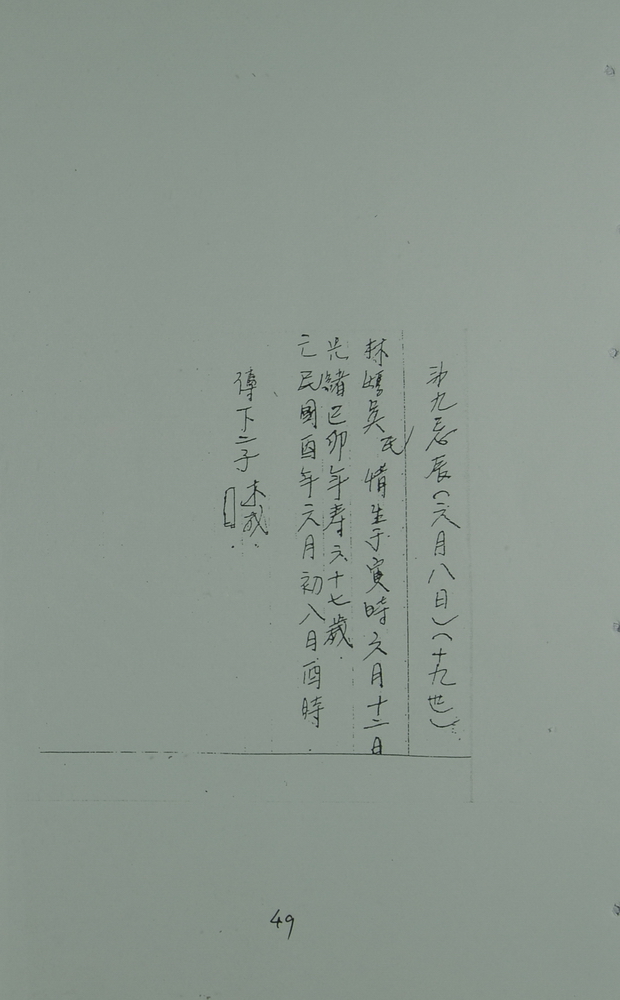 第九忌辰(六月八日)(十九世)
林媽吳氏 情生于寅時六月十二日
光緒己卯年寿六十七歲.
亡民國酉年六月初八日酉時.
傳下二子 木成.
49